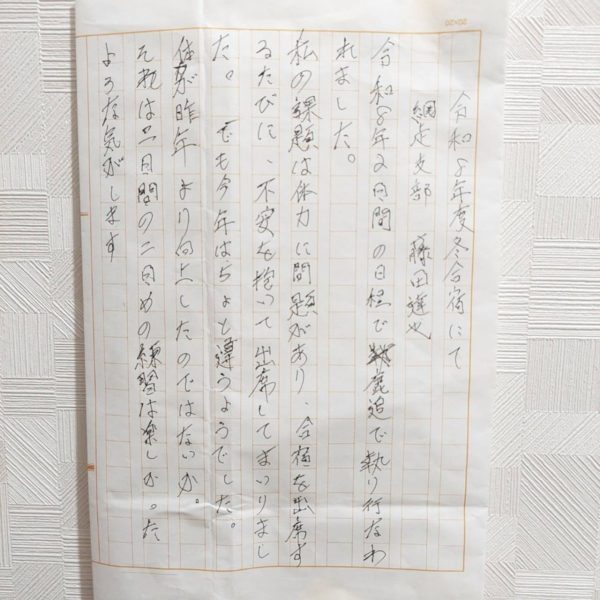 令和8年度冬合宿にて
網走支部 藤田進也
令和8年2日間の日程で鹿追で執り行なわ
れました。
私の課題は体力に問題があり、合宿を出席す
るたびに、不安を抱いて出席してまいりまし
た。でも今年はちょと違うようでした。
体が昨年より向上したのではないか。
それは2日間の二日めの練習は楽しか。た
ような気がします
20×20